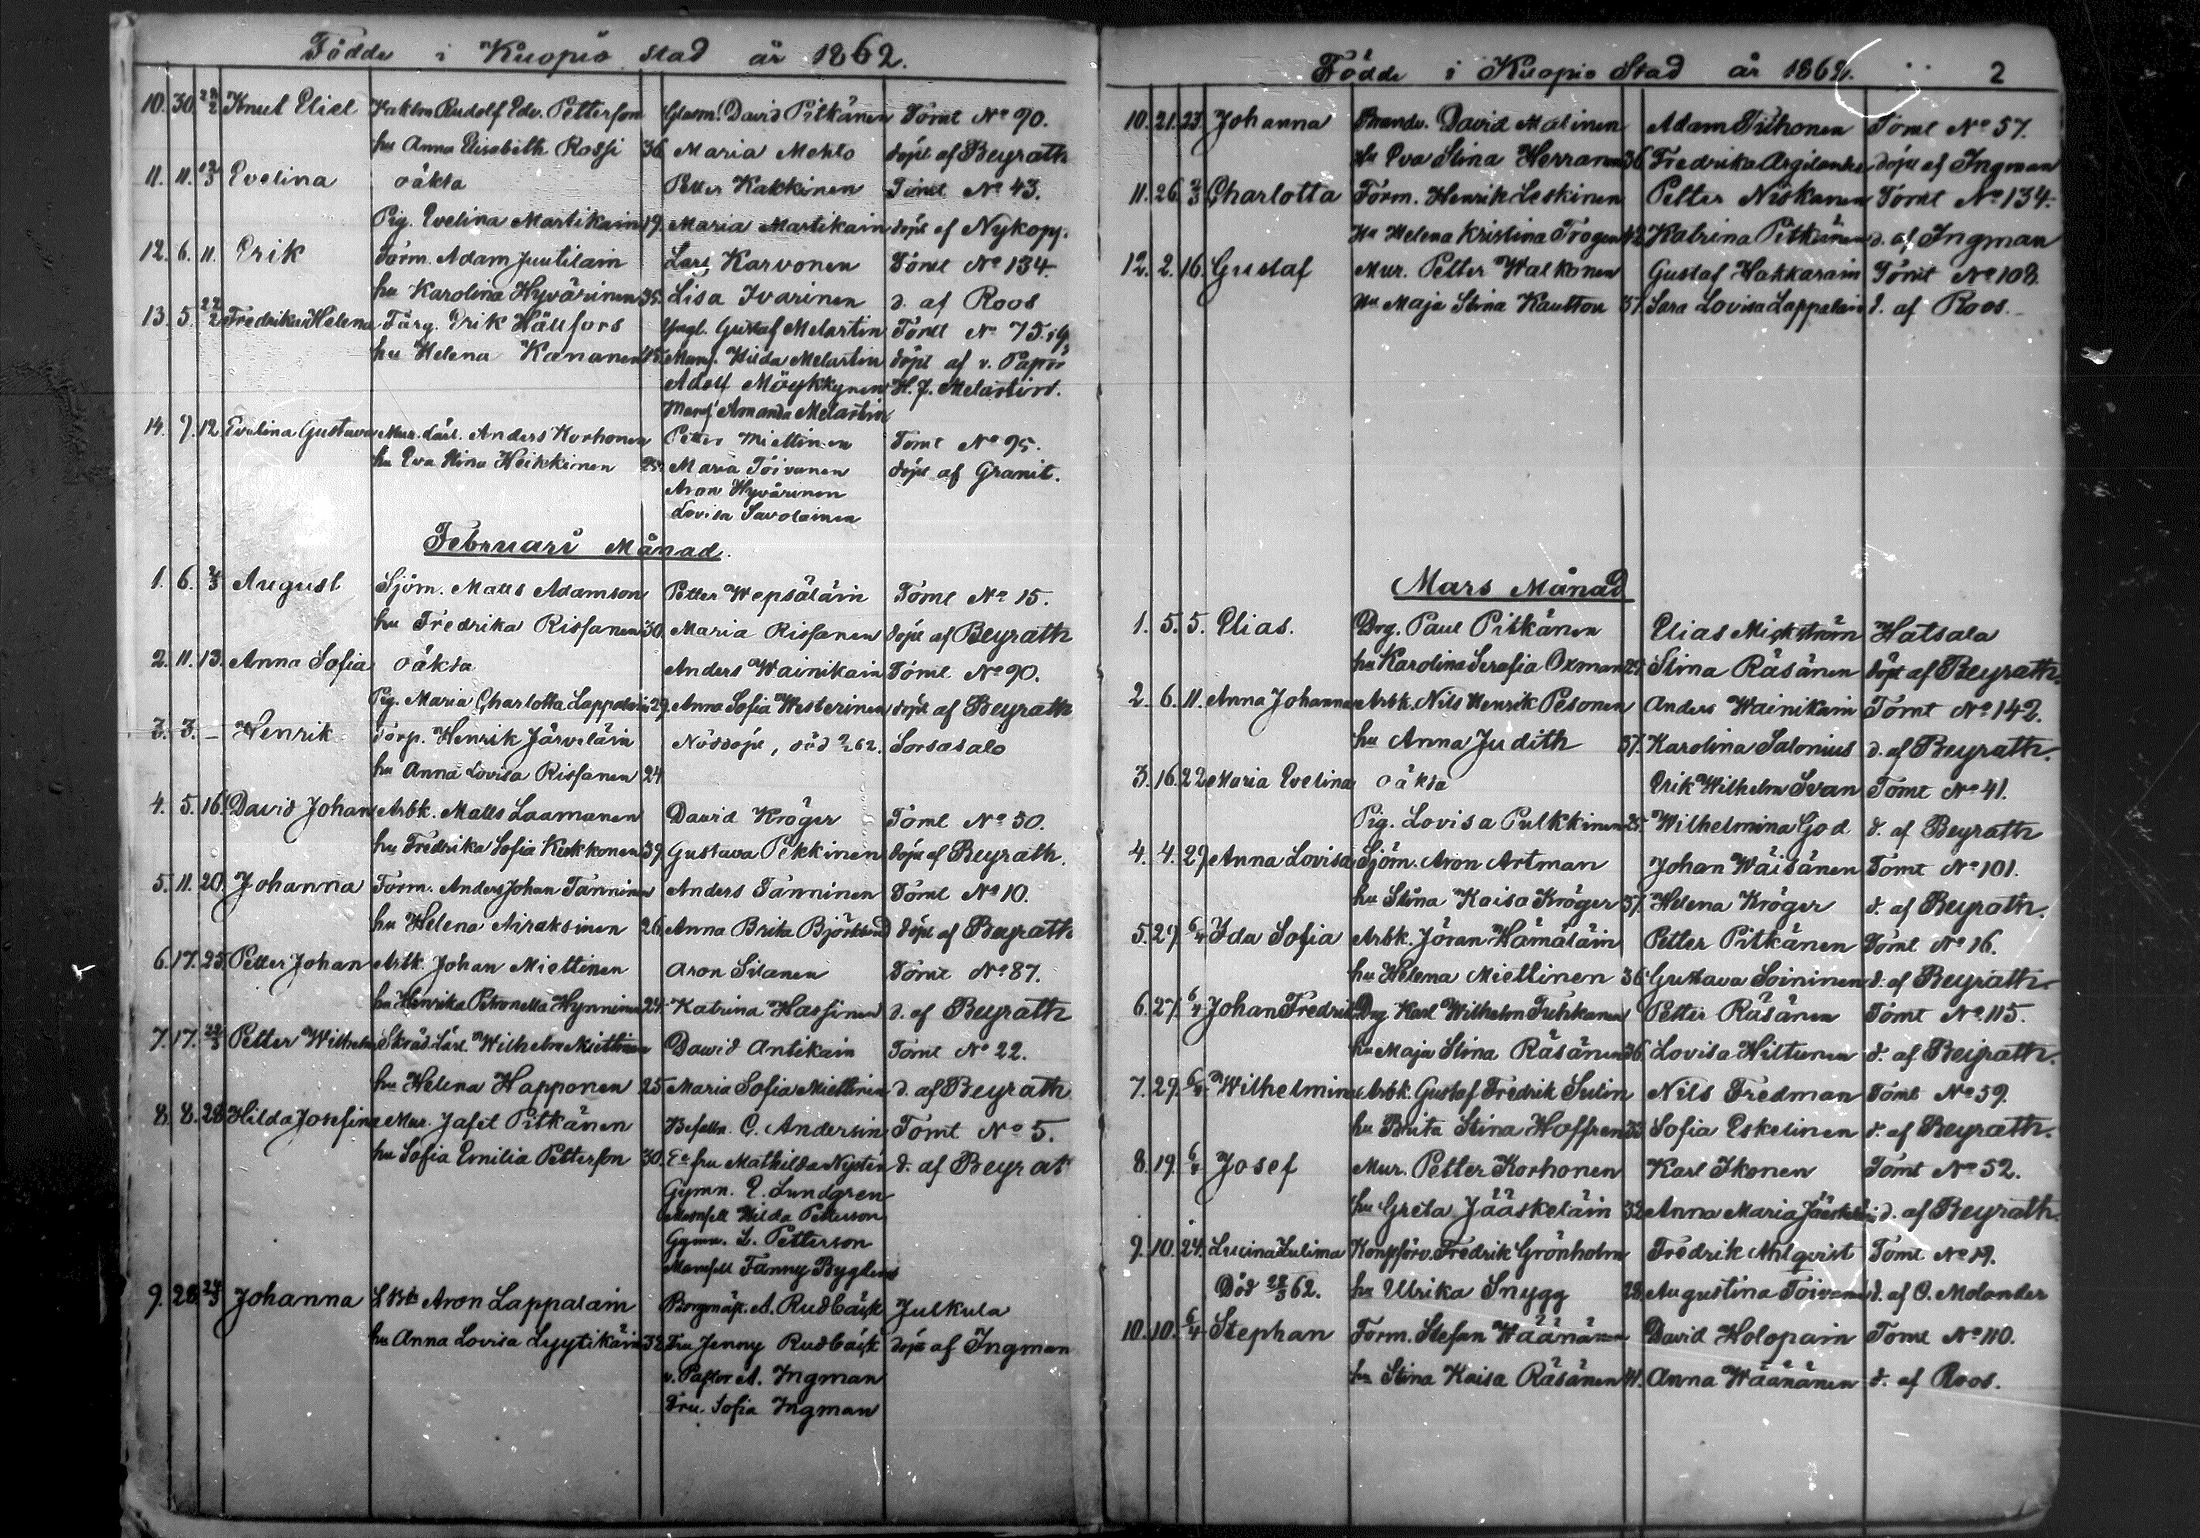 Födde i Kuopio stad år 1862.
10. 30. 23/2 Knut Eliel Faktor Rudolf Edv. Petterson Glasm. David Pitkänen Tomt No 90.
hu Anna Elisabeth Rossi 36 Maria Mehto döpt af Beyrath
11. 11. 13/3 Evelina oäkta Petter Kakkinen Tomt No 43.
Pig. Evelina Martikain 19. Maria Martikain döpt af Nykopp.
12. 6. 11. Erik Form. Adam Juutilain Lars Karvonen Tomt No 134
hu Karolina Hyvärinen 35. Lisa Ivarinen d. af Roos
13. 5. 22/2 Fredrika Helena Färg. Erik Hällfors Yngl. Gustaf Melartin Tomt No 75.
hu Helena Kananen 45. Mams. Hilda Melartin döpt af v. Past
Adolf Möykkynen H. J. Melartin.
Mams. Amanda Melartin
14. 7. 12. Evelina Gustava Mur. lärl. Anders Korhonen Petter Miettinen Tomt No 95.
hu Eva Stina Heikkinen 25. Maria Toivanen döpt af Granit.
Aron Hyvärinen
Lovisa Savolainen
Februari Månad.
1. 6. 2/3 August Sjöm. Matts Adamson Petter Wepsäläin Tomt No 15.
hu Fredrika Rissanen 30. Maria Rissanen döpt af Beyrath
2. 11. 13. Anna Sofia oäkta Anders Wainikain Tomt No 90.
Pig. Maria Charlotta Lappalain 29. Anna Sofia Westerinen döpt af Beyrath
3. 3. – Henrik Torp. Henrik Järveläin Nöddöpt, död 62. Sorsasalo
hu Anna Lovisa Rissanen 24
4. 5. 16. David Johan Arbk. Matts Laamanen David Kröger Tomt No 30.
hu Fredrika Sofia Kukkonen 39. Gustava Pekkinen döpt af Beyrath.
5. 11. 20. Johanna Form. Anders Johan Tanninen Anders Tanninen Tomt No 10.
hu Helena Airaksinen 26. Anna Brita Björklund döpt af Beyrath
6. 17. 23. Petter Johan Arbk. Johan Miettinen Aron Silanen Tomt No 87.
hu Henrika Petronella Hynninen 24. Katrina Hassinen d. af Beyrath
7. 17. 23/3 Petter Wilhelm Skräd. Lärl. Wilhelm Miettinen David Antikain Tomt No 22.
hu Helena Happonen 25. Maria Sofia Miettinen d. af Beyrath
8. 8. 28 Hilda Josefina Mur. Jafet Pitkänen Befalln. C. Andersin Tomt No 5.
hu Sofia Emilia Petterson 30. E:e fru Mathilda Nysten d. af Beyrat
Gymn. E. Lundgren
Mamsell Hilda Petterson
Gymn. L. Petterson
Mamsell Fanny Bygdens
9. 28. 24/3 Johanna Aron Lappalain Borgmäst. A. Rudbäck Julkula
hu Anna Lovisa Lyytikäin 32. Fru Jenny Rudbäck döpt af Ingman
v. Pastor A. Ingman
Fru. Sofia Ingman
Födde i Kuopio Stad år 1862. 2
10. 21. 23. Johanna Brandv. David Malinen Adam Tiihonen Tomt No 57.
Hu Eva Stina Herranen 36. Fredrika Argilander döpt af Ingman
11. 26. 2/3 Charlotta Form. Henrik Leskinen Petter Niskanen Tomt No 134.
Hu Helena Kristina Trogen 42. Katrina Pitkänen d. af Ingman
12. 2. 16. Gustaf Mur. Petter Walkonen Gustaf Hakkarain Tomt No 108
Hu Maja Stina Kauttou 37. Sara Lovisa Lappalain d. af Roos.
Mars Månad
1. 5. 5. Elias. Drg. Paul Pitkänen Elias Mickström Hatsala
hu Karolina Serafia Oxman 29. Stina Räsänen döpt af Beyrath.
2. 6. 11. Anna Johanna Arbk. Nils Henrik Pesonen Anders Wainikain Tomt No 142.
hu Anna Judith 37. Karolina Salonius d. af Beyrath.
3. 16. 22 Maria Evelina oäkta Erik Wilhelm Svan Tomt No 41.
Pig. Lovisa Pulkkinen 25. Wilhelmina God d. af Beyrath
4. 4. 29 Anna Lovisa Sjöm. Aron Artman Johan Wäisänen Tomt No 101.
hu Stina Kaisa Kröger 37. Helena Kröger d. af Beyrath.
5. 27. 6/4 Ida Sofia Arbk. Jöran Hämäläin Petter Pitkänen Tomt No 16.
hu Helena Miettinen 36. Gustava Soininen d. af Beyrath
6. 27. 6/4 Johan Fredrik Drg. Karl Wilhelm Tuhkanen Petter Räsänen Tomt No 115.
hu Maja Stina Räsänen 36. Lovisa Hiltunen d. af Beyrath.
7. 29. 6/4 Wilhelmina Arbk. Gustaf Fredrik Sulin Nils Fredman Tomt No 59.
hu Brita Stina Hoffren 33. Sofia Eskelinen d. af Beyrath.
8. 19. 6/4 Josef Mur. Petter Korhonen Karl Ikonen Tomt No 52.
hu Greta Jääskeläin 32. Anna Maria Jääskeläin d. af Beyrath.
9. 10. 24. Lucina Lulima Konstförv. Fredrik Grönholm Fredrik Ahlqvist Tomt No 19.
Död 28/3 62. hu Ulrika Snygg 28. Augustina Toivanen d. af O. Molander
10. 10. 6/4 Stephan Form. Stefan Wäänänen David Holopain Tomt No 110.
hu Stina Kaisa Räsänen 41. Anna Wäänänen d. af Roos.